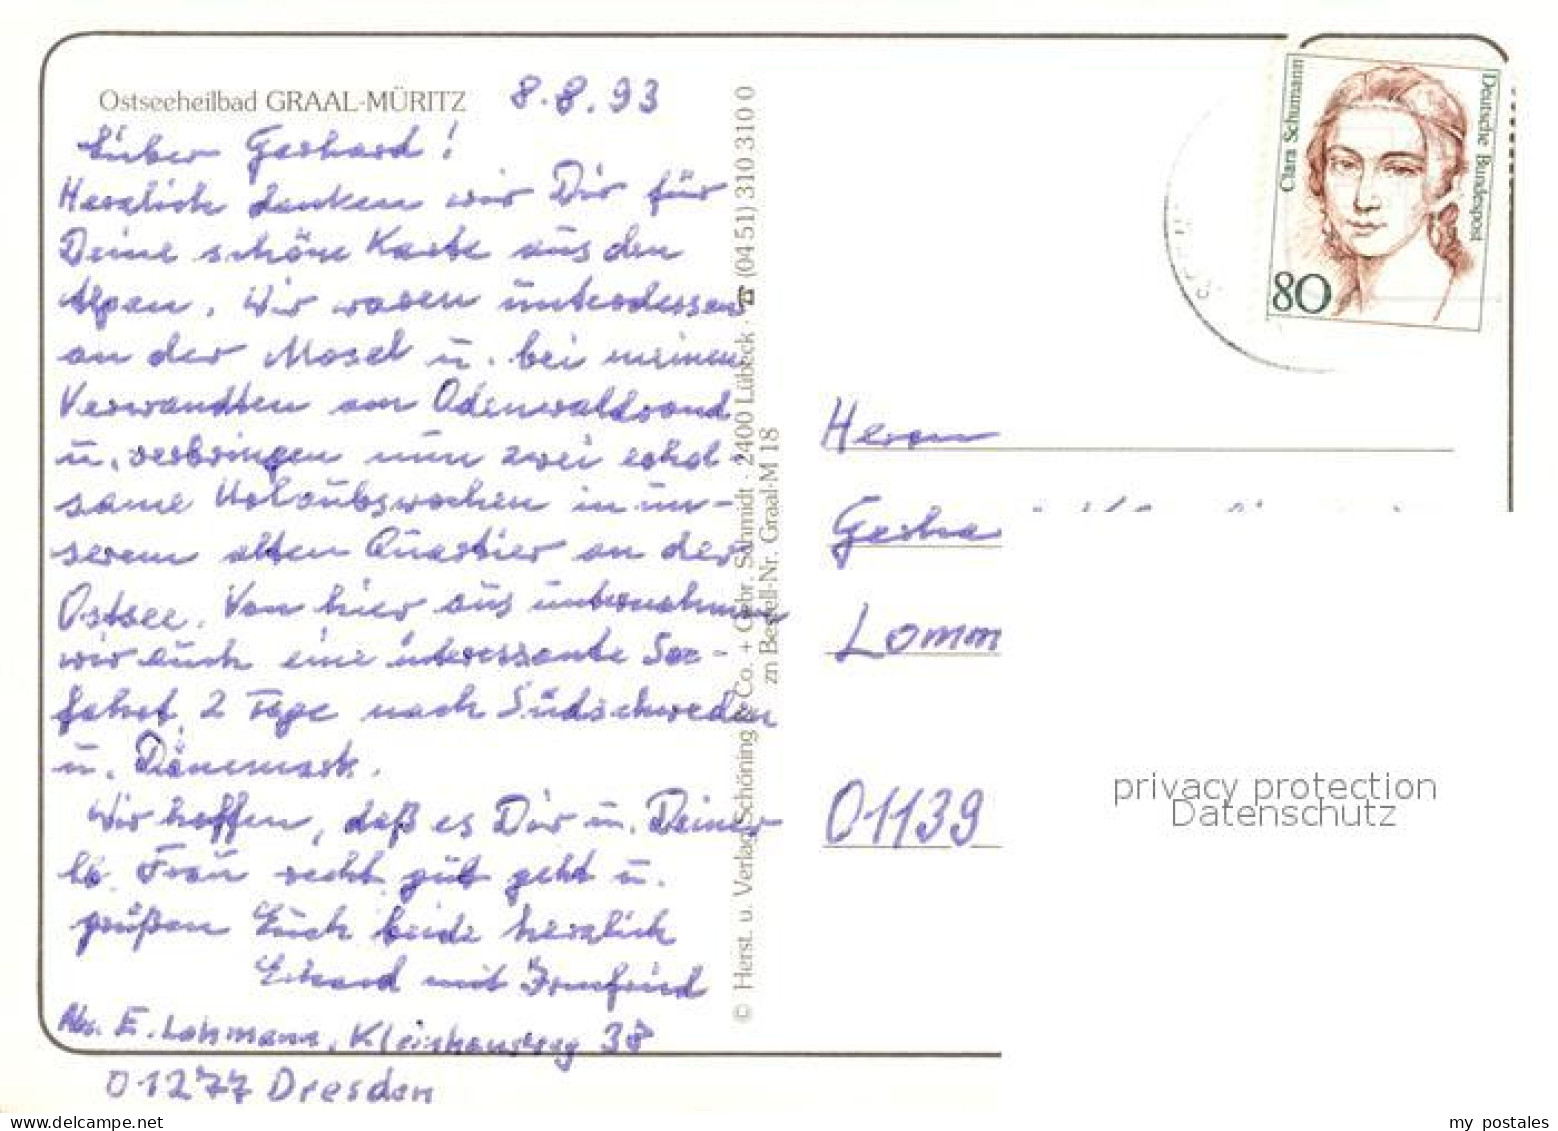 Ostseeheilbad GRAAL-MÜRITZ
8.8.93
Lieber Gerhard!
Herzlich danken wir Dir für
Deine schöne Karte aus den
Alpen. Wir waren unterdessen
an der Mosel u. bei meinen
Verwandten am Odenwaldrand
u. verbringen nun zwei erhol-
same Urlaubswochen in un-
serem alten Quartier an der
Ostsee. Von hier aus unternehmen
wir auch eine interessante See-
fahrt, 2 Tage nach Südschweden
u. Dänemark.
Wir hoffen, daß es Dir u. Deiner
lb. Frau recht gut geht u.
grüßen Euch beide herzlich
Erhard mit Irmfried
Abs. E. Lohmann, 38
01277 Dresden
© Herst. u. Verlag Schöning & Co. + Gebr. Schmidt · 2400 Lübeck · ☎ (04 51) 310 310 0
zn Bestell-Nr. Graal-M 18
Clara Schumann
Deutsche Bundespost
80
Herrn
Gerha
Lomm
01139
privacy protection
Datenschutz
my postales